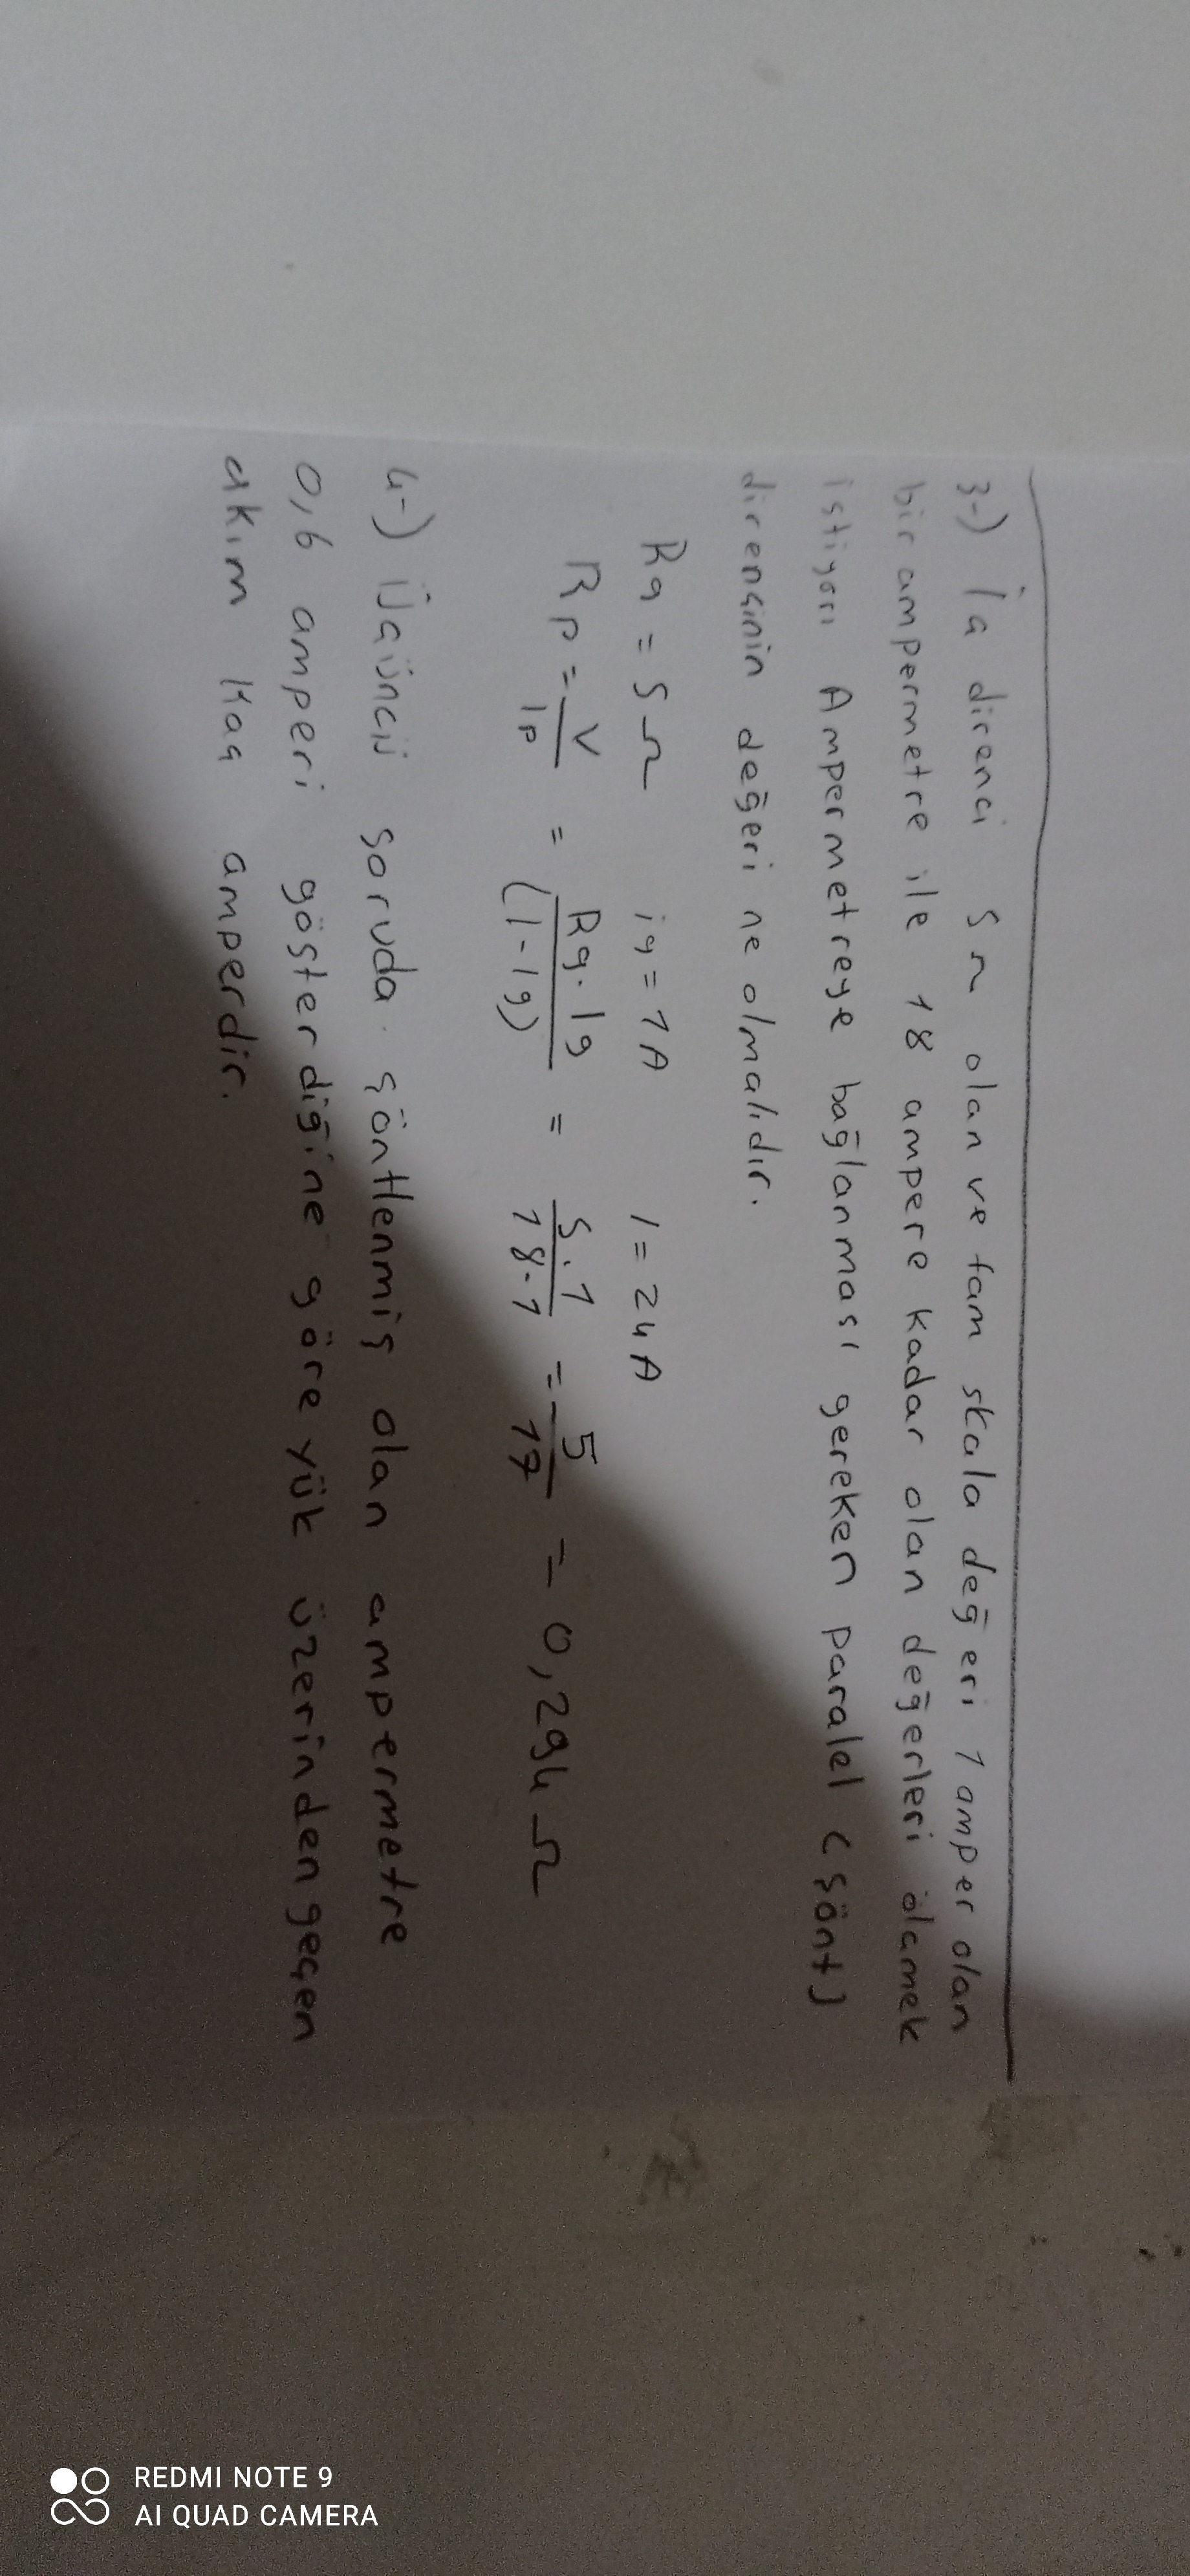 3-) İç direnci 5Ω olan ve tam skala değeri 1 amper olan
bir ampermetre ile 18 ampere kadar olan değerleri ölçmek
istiyor. Ampermetreye bağlanması gereken paralel (şönt)
direncinin değeri ne olmalıdır.
Rg = 5Ω ig = 1A I = 24A
Rp = V/Ip = Rg.Ig/(I-Ig) = 5.1/18-1 = 5/17 = 0,294Ω
4-) Üçüncü soruda şöntlenmiş olan ampermetre
0,6 amperi gösterdiğine göre yük üzerinden geçen
akım kaç amperdir.
REDMI NOTE 9
AI QUAD CAMERA